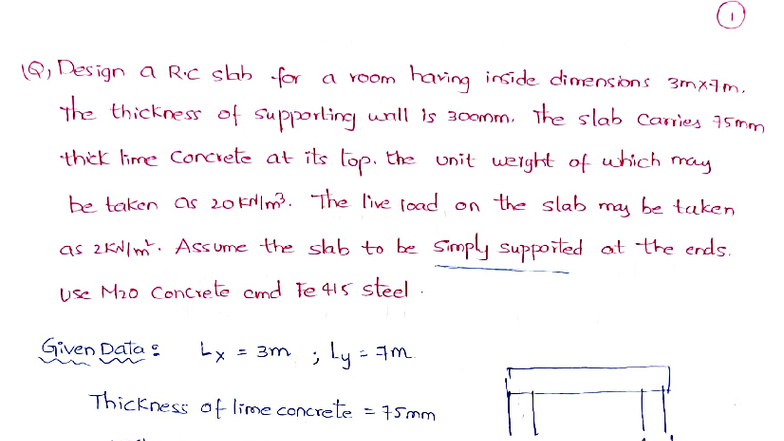 1
1Q, Design a R.C slab for a room having inside dimensions 3mx7m.
The thickness of supporting wall is 300mm. The slab carries 75mm
thick lime concrete at its top. the unit weight of which may
be taken as 20 kN/m³. The live load on the slab may be taken
as 2kN/m². Assume the slab to be simply supported at the ends.
Use M20 Concrete and Fe 415 steel.
Given Data: Lx = 3m ; Ly = 7m
Thickness of lime concrete = 75mm